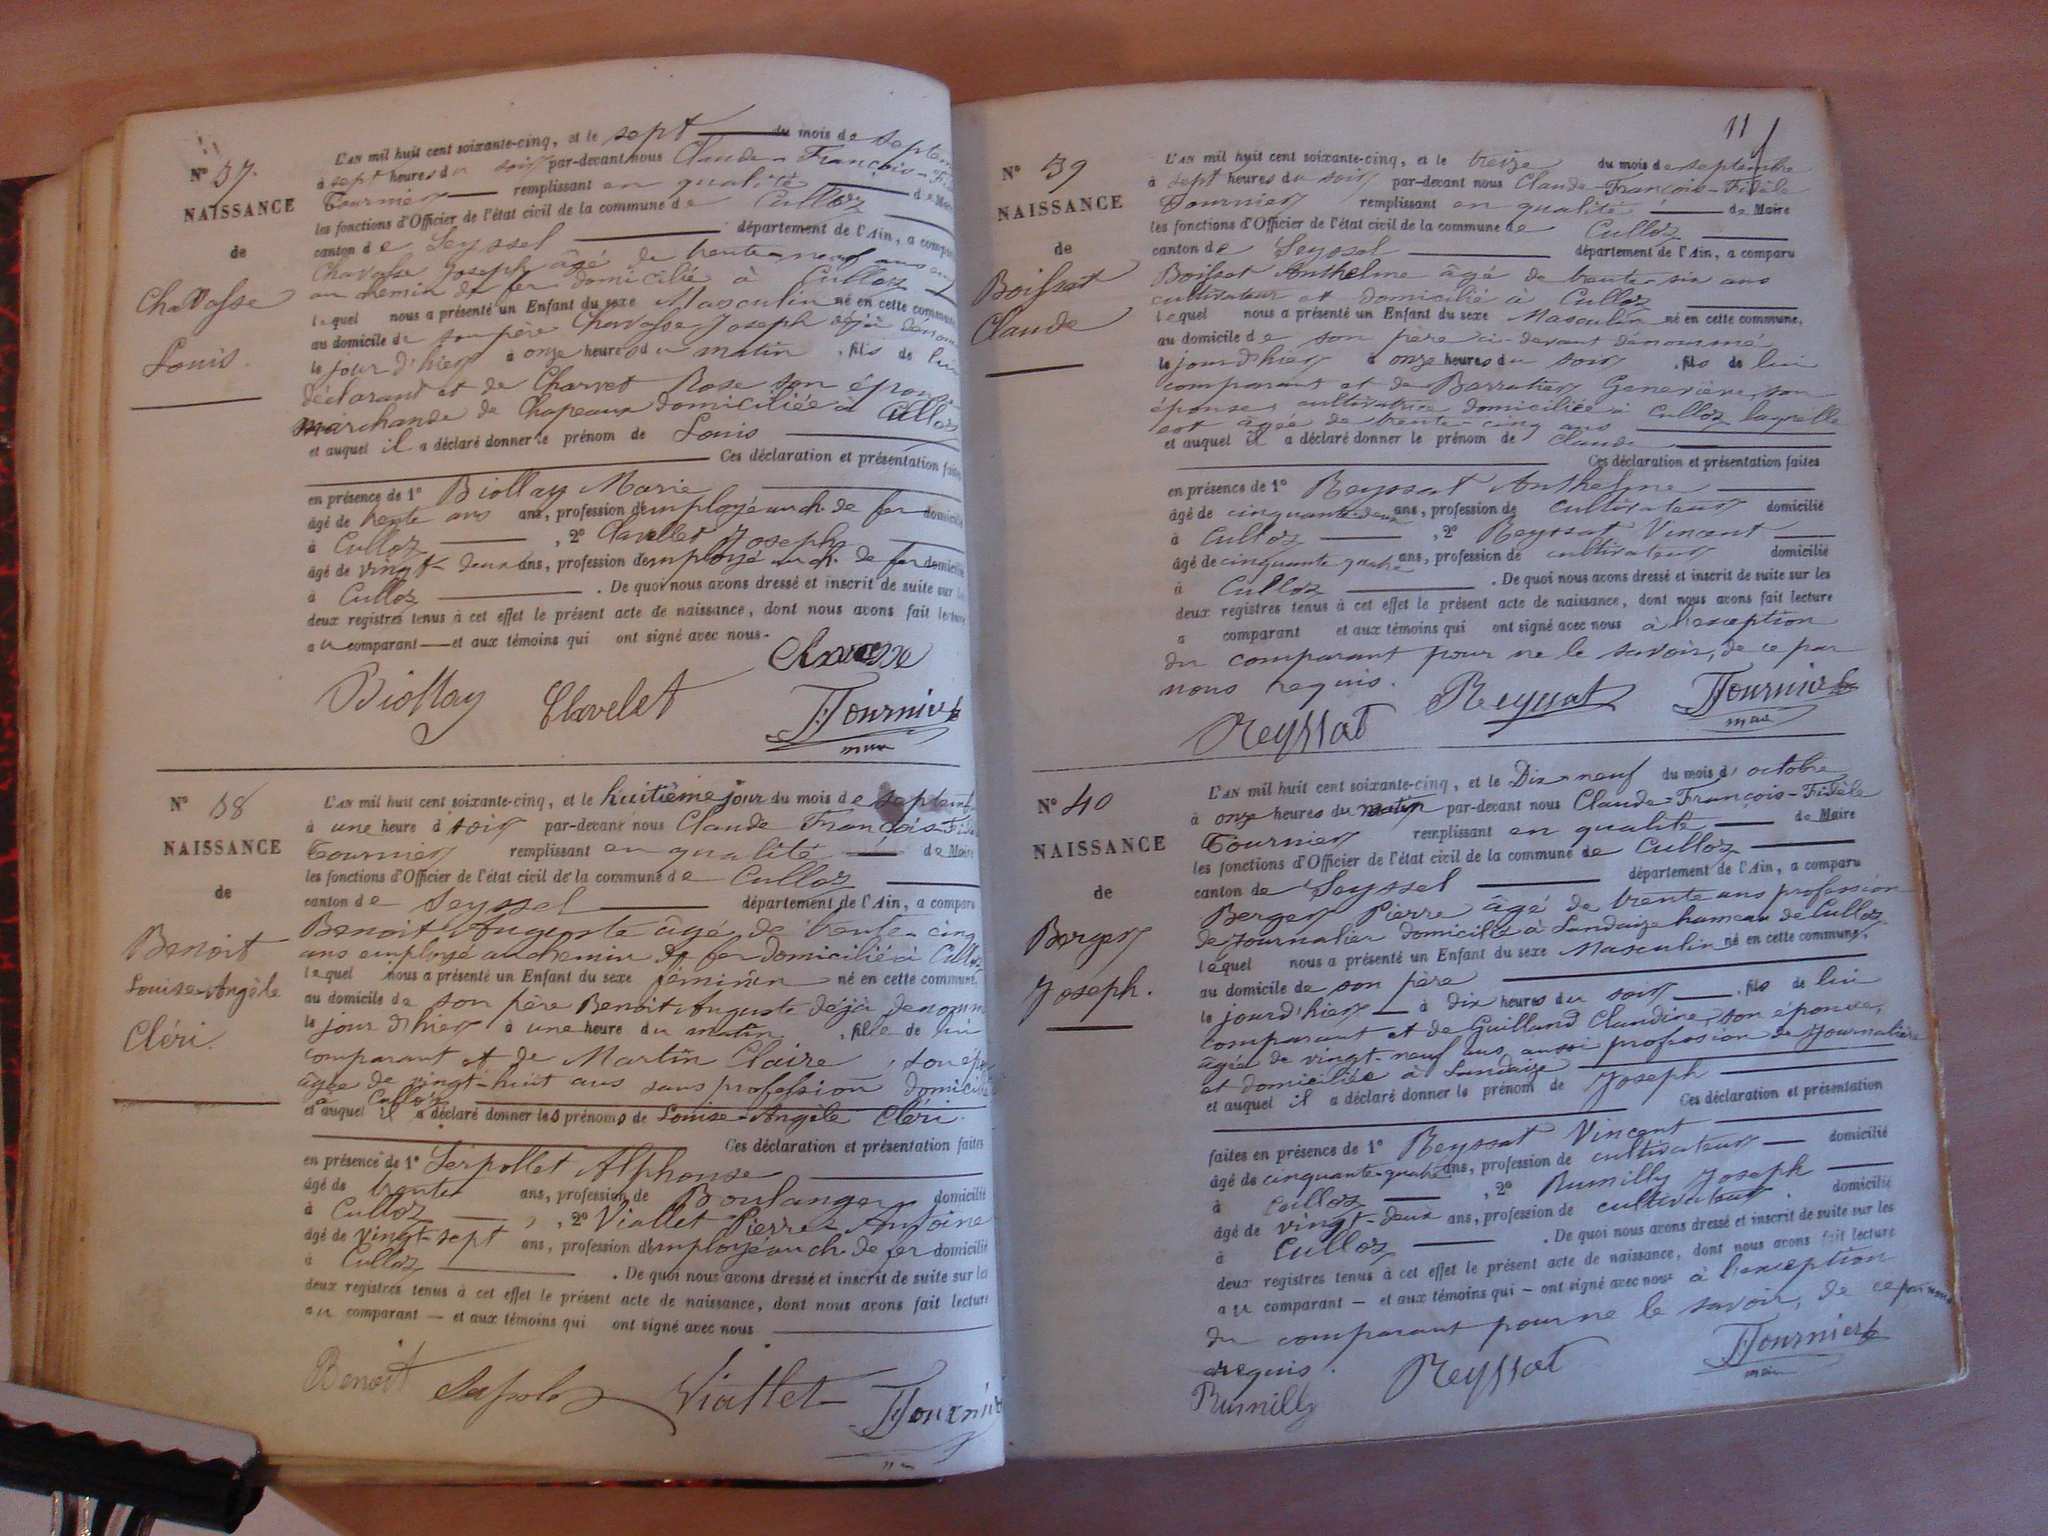 N° 37.
NAISSANCE
de
Chavasse
Louis.
L'AN mil huit cent soixante-cinq, et le sept du mois de septem
à sept heures du soir par-devant nous Claude-François-Fi
Tournier remplissant en qualité de Maire
les fonctions d'Officier de l'état civil de la commune de Culloz
canton de Seyssel département de l'Ain, a comparu
Chavasse Joseph âgé de trente-neuf ans
au chemin de fer domicilié à Culloz
lequel nous a présenté un Enfant du sexe Masculin né en cette commune
au domicile de son père Chavasse Joseph déjà dénom
le jour d'hier à onze heures du matin, fils de lui
déclarant et de Charvet Rose son épouse
marchande de Chapeaux domiciliée à Culloz
et auquel il a déclaré donner le prénom de Louis
Ces déclaration et présentation faites
en présence de 1° Biollay Marie
âgé de trente ans ans, profession d'employé au ch. de fer domicilié
à Culloz , 2° Clavelet Joseph
âgé de vingt-deux ans, profession d'employé au ch. de fer domicilié
à Culloz . De quoi nous avons dressé et inscrit de suite sur les
deux registres tenus à cet effet le présent acte de naissance, dont nous avons fait lecture
au comparant et aux témoins qui ont signé avec nous.
Chavasse
Biollay Clavelet FTournier
maire
N° 38
NAISSANCE
de
Benoit
Louise-Angèle
Cléri.
L'AN mil huit cent soixante-cinq, et le huitième jour du mois de septemb
à une heure d soir par-devant nous Claude François-Fidè
Tournier remplissant en qualité de Maire
les fonctions d'Officier de l'état civil de la commune de Culloz
canton de Seyssel département de l'Ain, a comparu
Benoit Auguste âgé de trente-cinq
ans employé au chemin de fer domicilié à Culloz
lequel nous a présenté un Enfant du sexe féminin né en cette commune,
au domicile de son père Benoit Auguste déjà dénomm
le jour d'hier à une heure du matin, fille de lui
comparant et de Martin Claire, son épou
âgée de vingt-huit ans sans profession domicili
à Culloz
et auquel il a déclaré donner les prénoms de Louise-Angèle Cléri.
Ces déclaration et présentation faites
en présence de 1° Serpollet Alphonse
âgé de trente ans, profession de Boulanger domicilié
à Culloz , 2° Viallet Pierre-Antoine
âgé de vingt-sept ans, profession d'employé au ch. de fer domicilié
à Culloz . De quoi nous avons dressé et inscrit de suite sur les
deux registres tenus à cet effet le présent acte de naissance, dont nous avons fait lecture
au comparant et aux témoins qui ont signé avec nous
Benoit Viallet FTournier
11
N° 39
NAISSANCE
de
Boissat
Claude
L'AN mil huit cent soixante-cinq, et le treize du mois de septembre
à sept heures du soir par-devant nous Claude-François-Fidèle
Tournier remplissant en qualité de Maire
les fonctions d'Officier de l'état civil de la commune de Culloz
canton de Seyssel département de l'Ain, a comparu
Boissat Anthelme âgé de trente-six ans
cultivateur et domicilié à Culloz
lequel nous a présenté un Enfant du sexe Masculin né en cette commune,
au domicile de son père ci-devant dénommé
le jour d'hier à onze heures du soir, fils de lui
comparant et de Barratier Geneviève, son
épouse, cultivatrice domiciliée à Culloz laquelle
est âgée de trente-cinq ans
et auquel il a déclaré donner le prénom de Claude
Ces déclaration et présentation faites
en présence de 1° Reyssat Anthelme
âgé de cinquante-deux ans, profession de cultivateur domicilié
à Culloz , 2° Reyssat Vincent
âgé de cinquante quatre ans, profession de cultivateur domicilié
à Culloz . De quoi nous avons dressé et inscrit de suite sur les
deux registres tenus à cet effet le présent acte de naissance, dont nous avons fait lecture
a comparant et aux témoins qui ont signé avec nous à l'exception
du comparant pour ne le savoir, de ce par
nous requis.
Reyssat Reyssat FTournier
maire
N° 40
NAISSANCE
de
Berger
Joseph.
L'AN mil huit cent soixante-cinq, et le Dix-neuf du mois d'octobre
à onze heures du matin par-devant nous Claude-François-Fidèle
Tournier remplissant en qualité de Maire
les fonctions d'Officier de l'état civil de la commune de Culloz
canton de Seyssel département de l'Ain, a comparu
Berger Pierre âgé de trente ans profession
de Journalier domicilié à Landaize hameau de Culloz
lequel nous a présenté un Enfant du sexe Masculin né en cette commune,
au domicile de son père
le jour d'hier à dix heures du soir, fils de lui
comparant et de Guilland Claudine, son épouse,
âgée de vingt-neuf ans aussi profession de Journalière
et domiciliée à Landaize
et auquel il a déclaré donner le prénom de Joseph
Ces déclaration et présentation
faites en présence de 1° Reyssat Vincent
âgé de cinquante-quatre ans, profession de cultivateur domicilié
à Culloz , 2° Rumilly Joseph
âgé de vingt-deux ans, profession de cultivateur. domicilié
à Culloz . De quoi nous avons dressé et inscrit de suite sur les
deux registres tenus à cet effet le présent acte de naissance, dont nous avons fait lecture
au comparant et aux témoins qui ont signé avec nous à l'exception
du comparant pour ne le savoir, de ce par nous
requis.
Rumilly Reyssat FTournier
maire